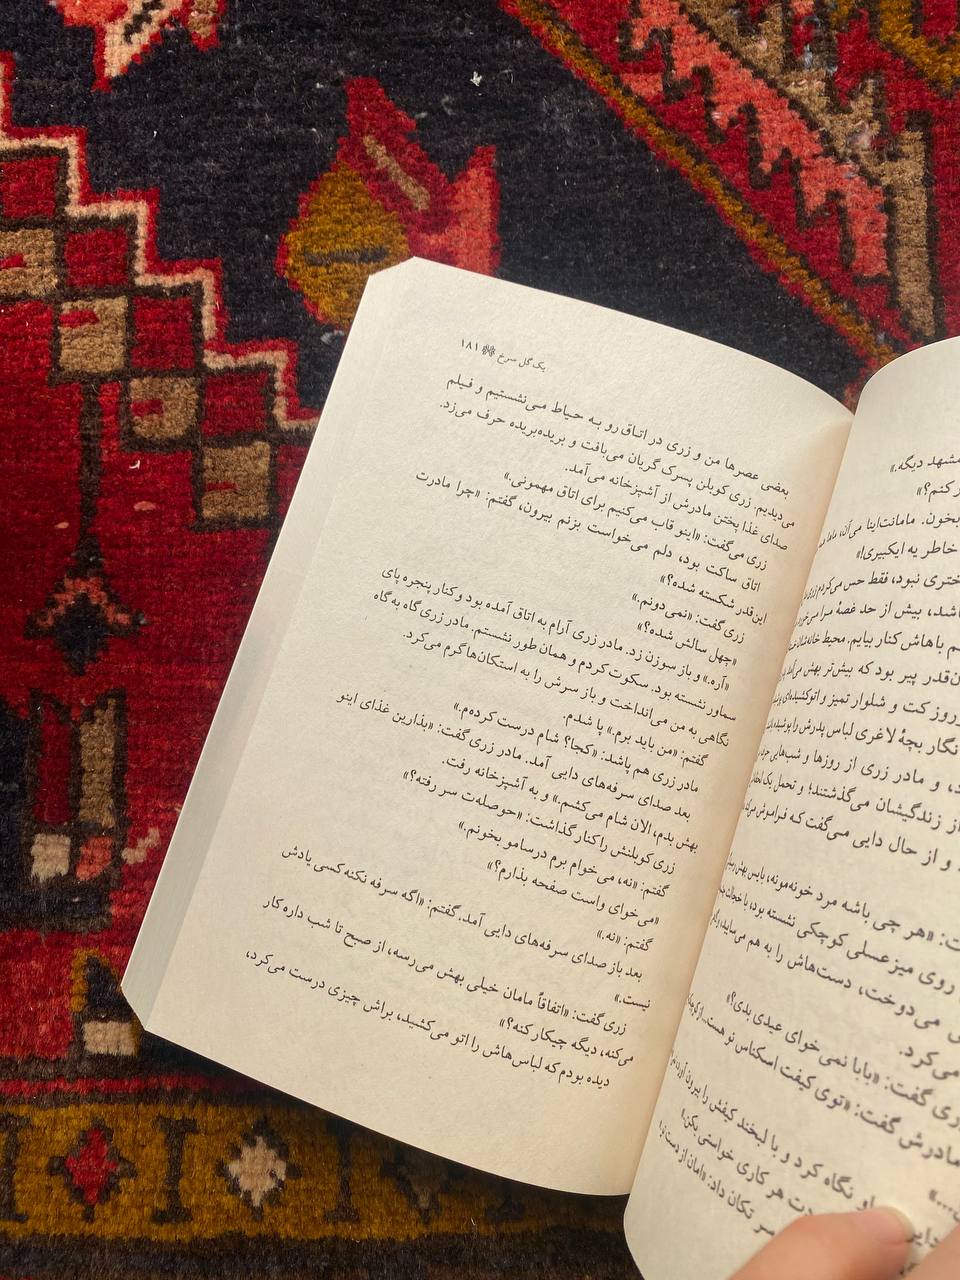 مشهد دیگه.»
کنم؟»
بخون. مامانت‌اینا می‌آن، ماما
خاطر یه ایکبیری!»
ختری نبود، فقط حس می‌کردم زری
باشد، بیش از حد غصهٔ مرا می‌خورد
م باهاش کنار بیایم. محیط خانه‌شان
ن‌قدر پیر بود که بیش‌تر بهش می‌آمد
روز کت و شلوار تمیز و اتوکشیده‌ای
نگار بچهٔ لاغری لباس پدرش را پوشیده
د، و مادر زری از روزها و شب‌هایی
از زندگیشان می‌گذشتند؛ و تحمل یک
و از حال دایی می‌گفت که فراموش
ت: «هر چی باشه مرد خونه‌مونه، بایس بهش
روی میز عسلی کوچکی نشسته بود، با خجالت
می‌دوخت، دست‌هاش را به هم می‌ساید،
می‌کرد.
ری گفت: «بابا نمی‌خوای عیدی بدی؟»
مادرش گفت: «توی کیفت اسکناس نو هست...
نگاه کرد و با لبخند کیفش را بیرون آورد
دت هر کاری خواستی بکن.»
سر تکان داد: «امان از دست
یک گل سرخ ۱۸۱
بعضی عصرها من و زری در اتاق رو به حیاط می‌نشستیم و فیلم
می‌دیدیم. زری کوبلن پسرک گریان می‌بافت و بریده‌بریده حرف می‌زد.
صدای غذا پختن مادرش از آشپزخانه می‌آمد.
زری می‌گفت: «اینو قاب می‌کنیم برای اتاق مهمونی.»
اتاق ساکت بود، دلم می‌خواست بزنم بیرون، گفتم: «چرا مادرت
این‌قدر شکسته شده؟»
زری گفت: «نمی‌دونم.»
«چهل سالش شده؟»
«آره.» و باز سوزن زد. مادر زری آرام به اتاق آمده بود و کنار پنجره پای
سماور نشسته بود. سکوت کردم و همان طور نشستم. مادر زری گاه به گاه
نگاهی به من می‌انداخت و باز سرش را به استکان‌ها گرم می‌کرد.
گفتم: «من باید برم.» پا شدم.
مادر زری هم پاشد: «کجا؟ شام درست کرده‌م.»
بعد صدای سرفه‌های دایی آمد. مادر زری گفت: «بذارین غذای اینو
بهش بدم، الان شام می‌کشم.» و به آشپزخانه رفت.
زری کوبلنش را کنار گذاشت: «حوصله‌ت سر رفته؟»
گفتم: «نه، می‌خوام برم درسامو بخونم.»
«می‌خوای واست صفحه بذارم؟»
گفتم: «نه.»
بعد باز صدای سرفه‌های دایی آمد. گفتم: «اگه سرفه نکنه کسی یادش
نیست.»
زری گفت: «اتفاقاً مامان خیلی بهش می‌رسه، از صبح تا شب داره کار
می‌کنه، دیگه چیکار کنه؟»
دیده بودم که لباس‌هاش را اتو می‌کشید، براش چیزی درست می‌کرد،